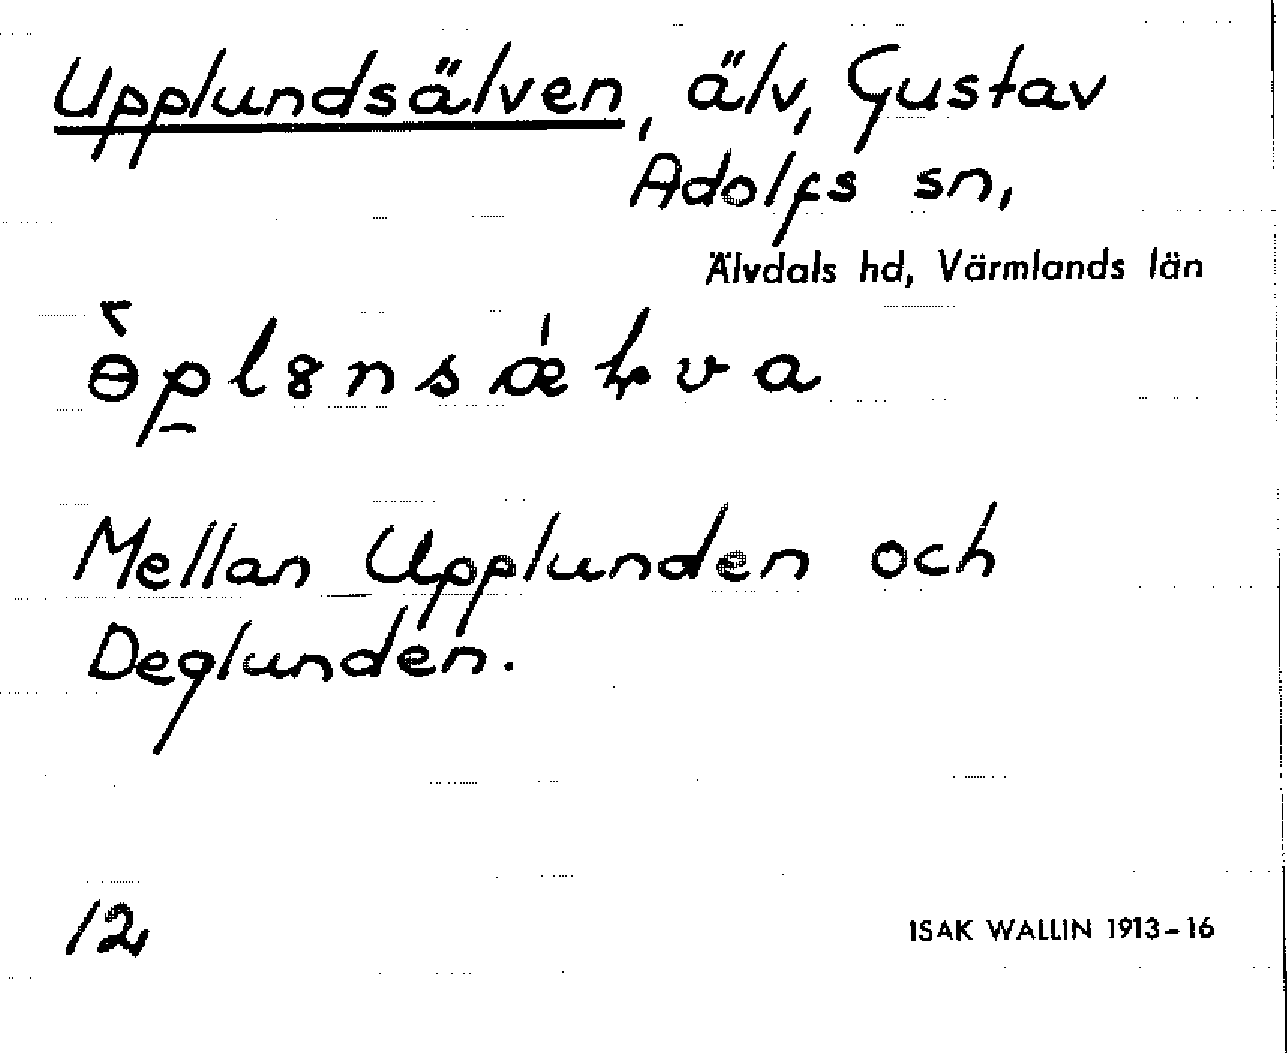 Upplundsälven, älv, Gustav
Adolfs sn,
Älvdals hd, Värmlands län
Mellan Upplunden och
Deglunden.
12
ISAK WALLIN 1913-16